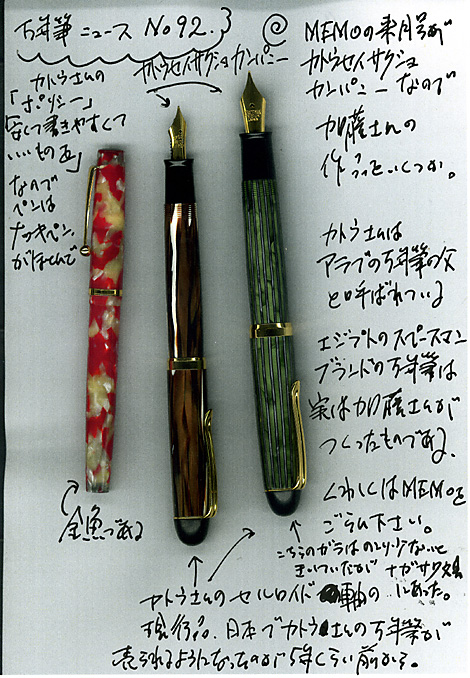 万年筆ニュース No92.
カトウセイサクショカンパニー
カトウさんの
「ポリシー」
安くて書きやすくて
いいものを」
なので
ペンは
ナツキペン。
がほとんで
金魚である
MEMOの来月号が
カトウセイサクショ
カンパニーなので
加藤さんの
作品をいくつか。
カトウさんは
アラブの万年筆の父
と呼ばれている
エジプトのスペースマン
ブランドの万年筆は
実は加藤さんが
つくったものである。
くわしくはMEMOを
ごらん下さい。
こちらのガラはのこり少ないと
きいていたがナガサワ文具
にあった。
カトウさんのセルロイド軸の
現行品。日本でカトウさんの万年筆が
売られるようになったのが5年くらい前から。